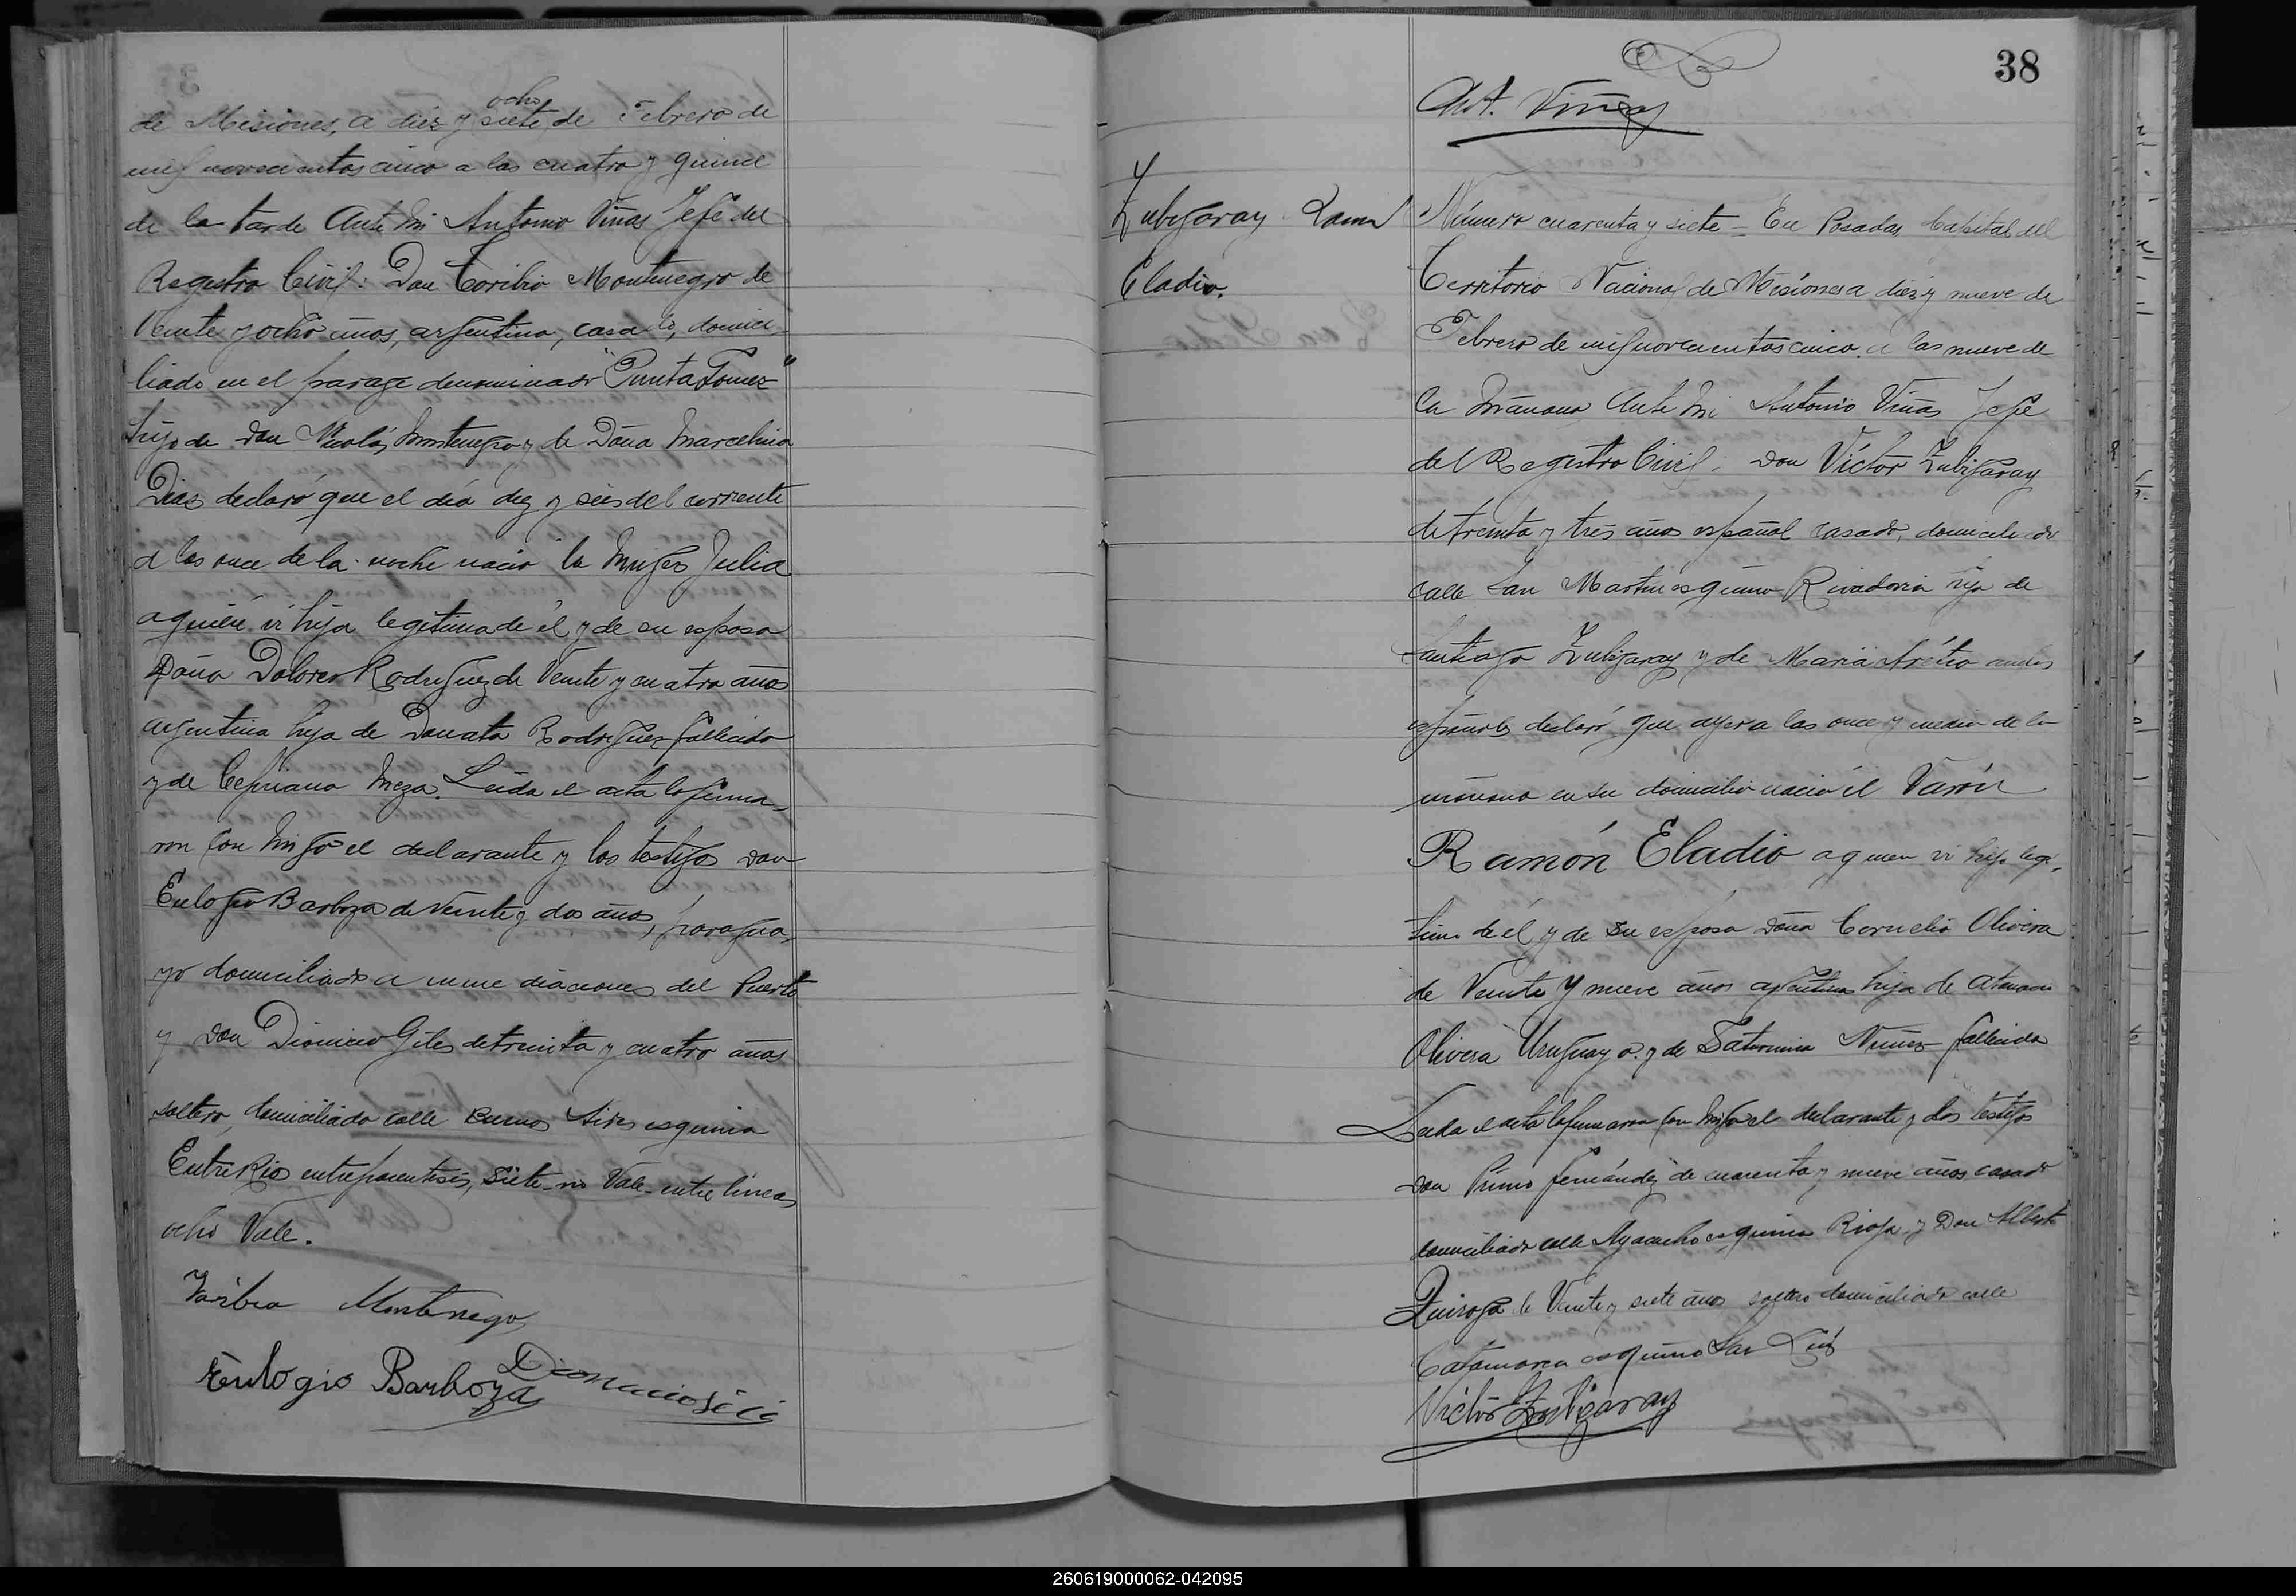 de Misiones, a diez y siete de Febrero de
ocho
mil novecientos cinco a las cuatro y quince
de la tarde Ante Mi Antonio Viñas Jefe del
Registro Civil: Don Toribio Montenegro de
Veinte y ocho años, argentino, casado, domici-
liado en el parage denominado "Punta Gomez"
hijo de don Nicolás Montenegro y de Doña Marcelina
Diaz declaró que el día diez y seis del corriente
a las once de la noche nació la Mujer Julia
a quien vi hija legitima de él y de su esposa
Doña Dolores Rodriguez de Veinte y cuatro años
argentina hija de Donato Rodriguez fallecido
y de Cepriana Meza. Leida el acta la firma-
ron con migo el declarante y los testigos don
Eulogio Barboza de veinte y dos años, paragua-
yo domiciliado a inmediaciones del Puerto
y don Dionicio Giles de treinta y cuatro años
soltero, domiciliado calle Buenos Aires esquina
Entre Rios entreparentesis, siete - no Vale - entre lineas
ocho Vale.
Toribio Montenegro
Eulogio Barboza
38
Ant. Viñas
Zubigaray Ramon
Eladio.
Número cuarenta y siete - En Posadas Capital del
Territorio Nacional de Misiones a diez y nueve de
Febrero de mil novecientos cinco a las nueve de
la mañana Ante Mi Antonio Viñas Jefe
del Registro Civil: don Víctor Zubigaray
de treinta y tres años español casado, domiciliado
calle San Martin esquina Rivadavia hijo de
Santiago Zubigaray y de Maria
españoles declaró que ayer a las once y media de la
mañana en su domicilio nació el Varón
Ramón Eladio a quien vi hijo legí-
timo de él y de su esposa doña Cornelia Olivera
de Veinte y nueve años argentina hija de
Olivera Uruguayo y de Saturnina Nuñez fallecida
Leida el acta la firmaron con migo el declarante y los testigos
don Primo Fernández de cuarenta y nueve años casado
domiciliado calle Ayacucho esquina Rioja y Don Alberto
Quiroga de Veinte y siete años soltero domiciliado calle
Catamarca esquina San Luis
Victor Zubigaray
260619000062-042095